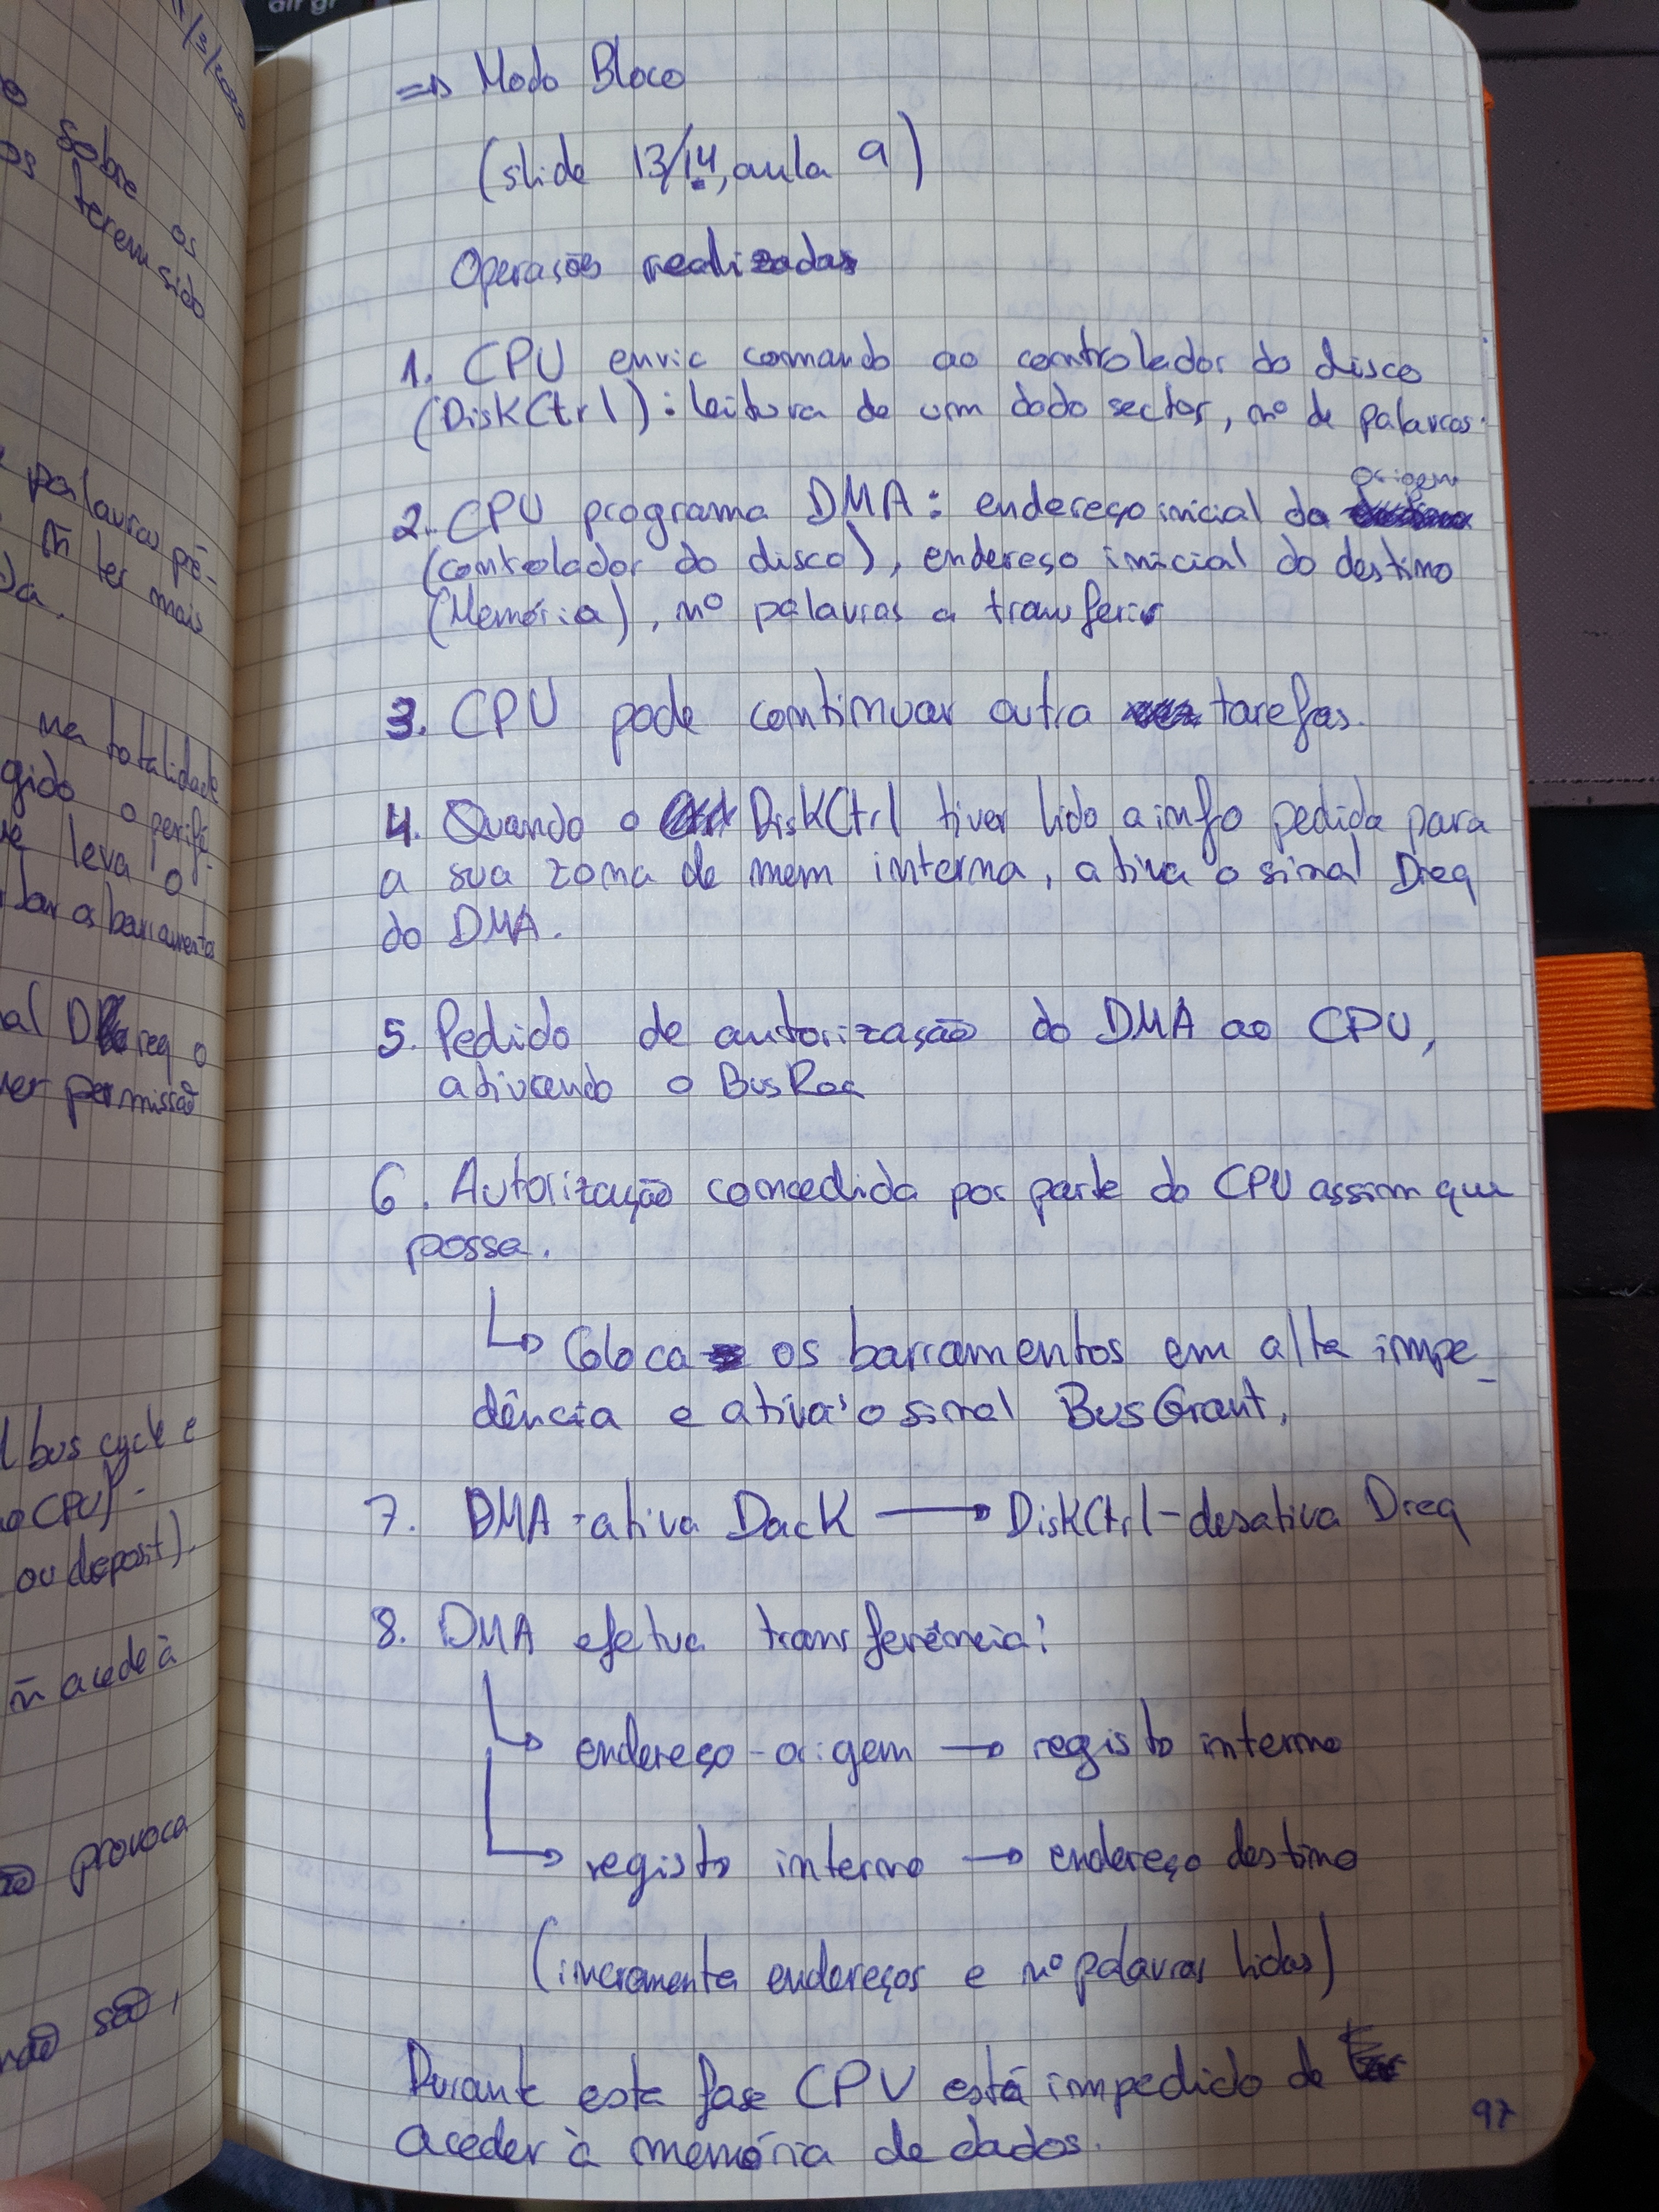 11/3/2020
sobre os
terem sido
palavras pré-
ñ ter mais
da.
na totalidade
gido o perifé-
leva o
os barramentos
al Dreq o
permissão
bus cycle e
o CPU)
ou deposit).
ñ acede à
provoca
não são,
=> Modo Bloco
(slide 13/14, aula 9)
Operações realizadas
1. CPU envia comando ao controlador do disco
(DiskCtrl): leitura de um dado sector, nº de palavras.
origem
2. CPU programa DMA: endereço inicial da
(controlador do disco), endereço inicial do destino
(Memória), nº palavras a transferir
3. CPU pode continuar outra tarefas.
4. Quando o DiskCtrl tiver lido a info pedida para
a sua zona de mem interna, ativa o sinal Dreq
do DMA.
5. Pedido de autorização do DMA ao CPU,
ativando o BusReq
6. Autorização concedida por parte do CPU assim que
possa.
↳ Coloca os barramentos em alta impe-
dência e ativa o sinal BusGrant.
7. DMA - ativa Dack → DiskCtrl - desativa Dreq
8. DMA efetua transferência:
↳ endereço-origem → registo interno
↳ registo interno → endereço destino
(incrementa endereços e nº palavras lidas)
Durante esta fase CPU está impedido de
aceder à memória de dados.
97